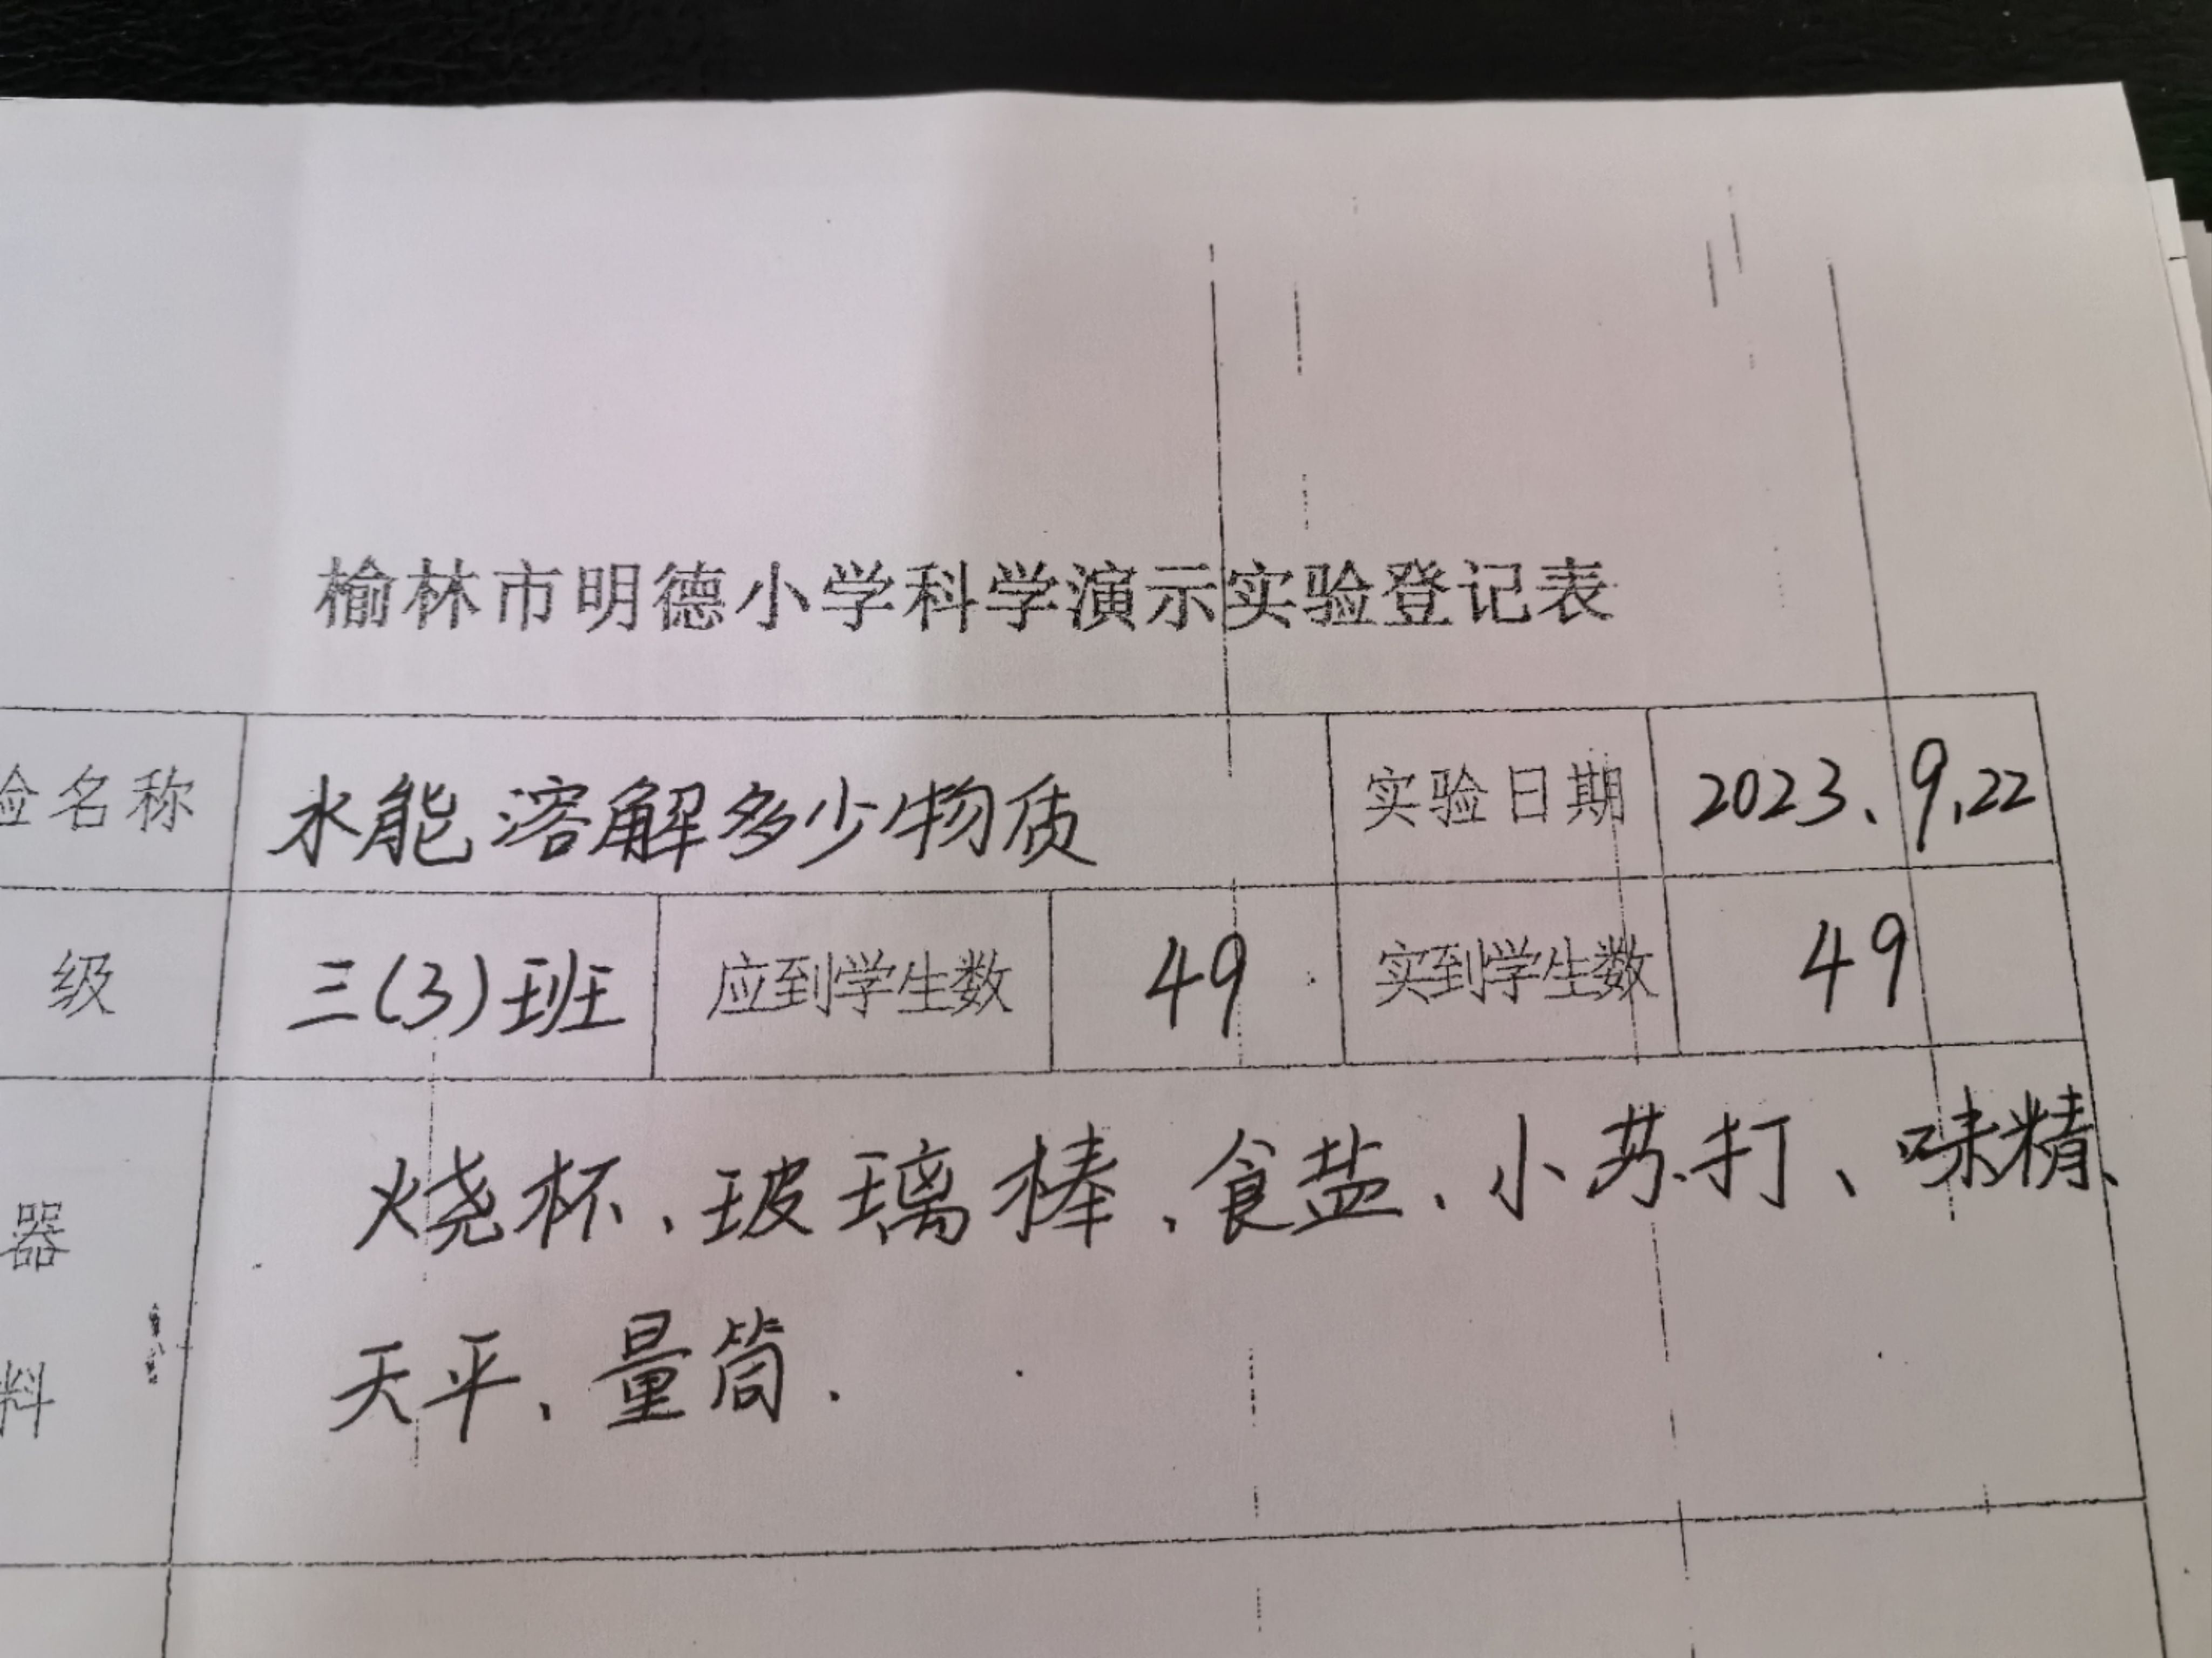 榆林市明德小学科学演示实验登记表
验名称 水能溶解多少物质 实验日期 2023、9.22
级 三(3)班 应到学生数 49 实到学生数 49
器 烧杯、玻璃棒、食盐、小苏打、味精、
料 天平、量筒.